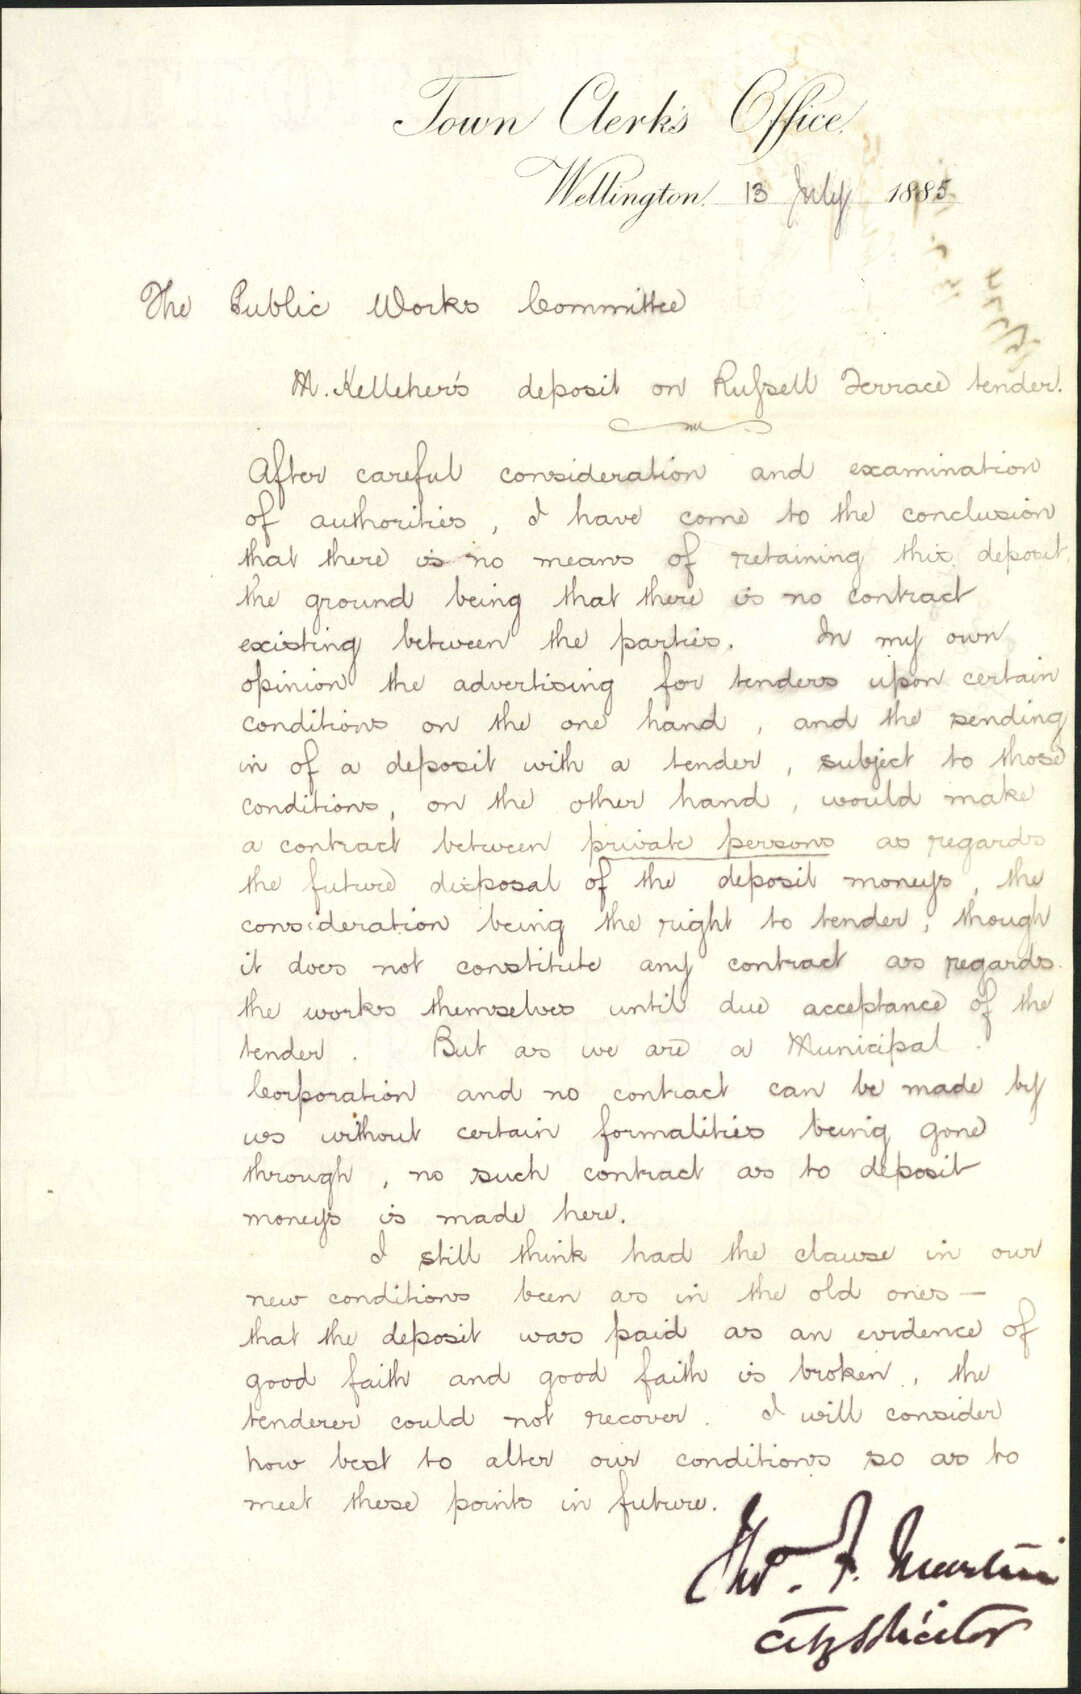 Town Clerk's Office.
Wellington. 13 July 1885
The Public Works Committee
M. Kelleher's deposit on Rufsell Terrace tender.
After careful consideration and examination
of authorities, I have come to the conclusion
that there is no means of retaining this deposit,
the ground being that there is no contract
existing between the parties. In my own
opinion the advertising for tenders upon certain
conditions on the one hand, and the sending
in of a deposit with a tender, subject to those
conditions, on the other hand, would make
a contract between private persons as regards
the future disposal of the deposit moneys, the
consideration being the right to tender, though
it does not constitute any contract as regards
the works themselves until due acceptance of the
tender. But as we are a Municipal
Corporation and no contract can be made by
us without certain formalities being gone
through, no such contract as to deposit
moneys is made here.
I still think had the clause in our
new conditions been as in the old ones —
that the deposit was paid as an evidence of
good faith and good faith is broken, the
tenderer could not recover. I will consider
how best to alter our conditions so as to
meet these points in future.
Tho. F. Martin
City Solicitor